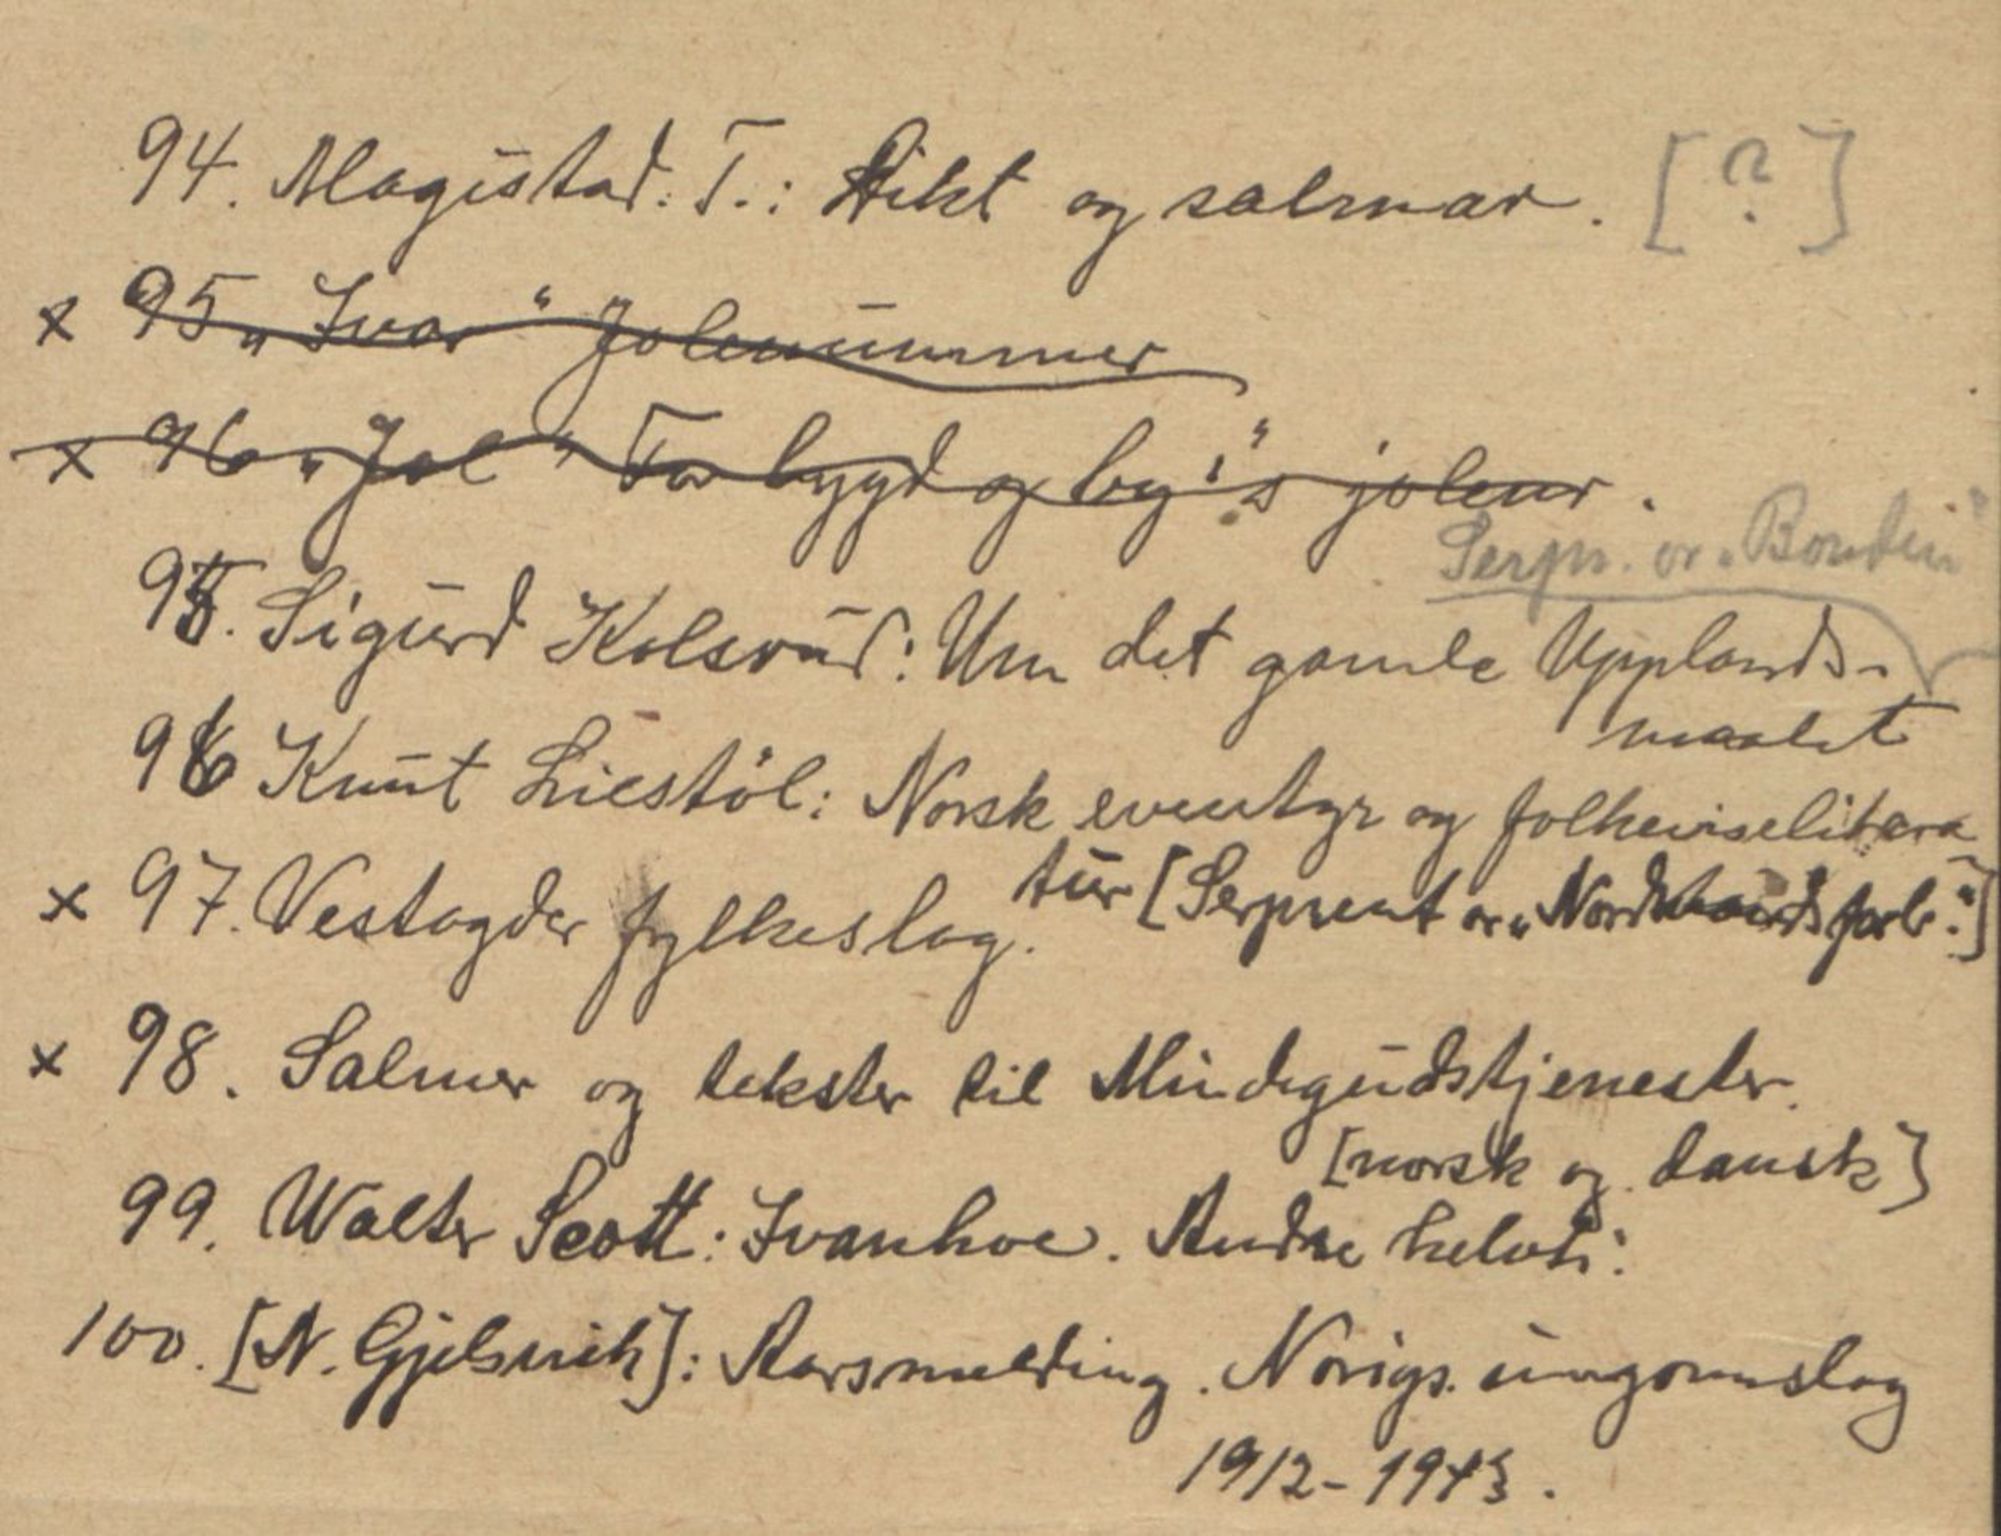 94. Magistad. T.: Dikt og salmar. [?]
x 95 „Ivar“ Jolenummer
x 96 „Jol“ „For bygd og by“'s jolenr.
Serpr. or „Bonden“
95. Sigurd Kolsrud: Um det gamle Upplands-
maalet
96 Knut Liestöl: Norsk eventyr og folkeviselitera
tur [Serprent or „Nordmands forb.“]
x 97. Vestagder fylkeslag.
x 98. Salmer og tekster til Mindegudstjenester.
[norsk og dansk]
99. Walter Scott: Ivanhoe. Andre helvti.
100. [N. Gjelsvik]: Aarsmelding. Norigs ungdomslag
1912-1913.